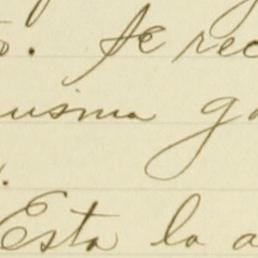 o. Se rec
misma ga
Esta la a